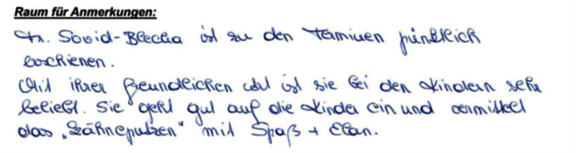 Raum für Anmerkungen:
Fr. Sovid-Blecha ist zu den Terminen pünktlich
erschienen.
Mit ihrer freundlichen Art ist sie bei den Kindern sehr
beliebt. Sie geht gut auf die Kinder ein und vermittelt
das „Zähneputzen" mit Spaß + Elan.